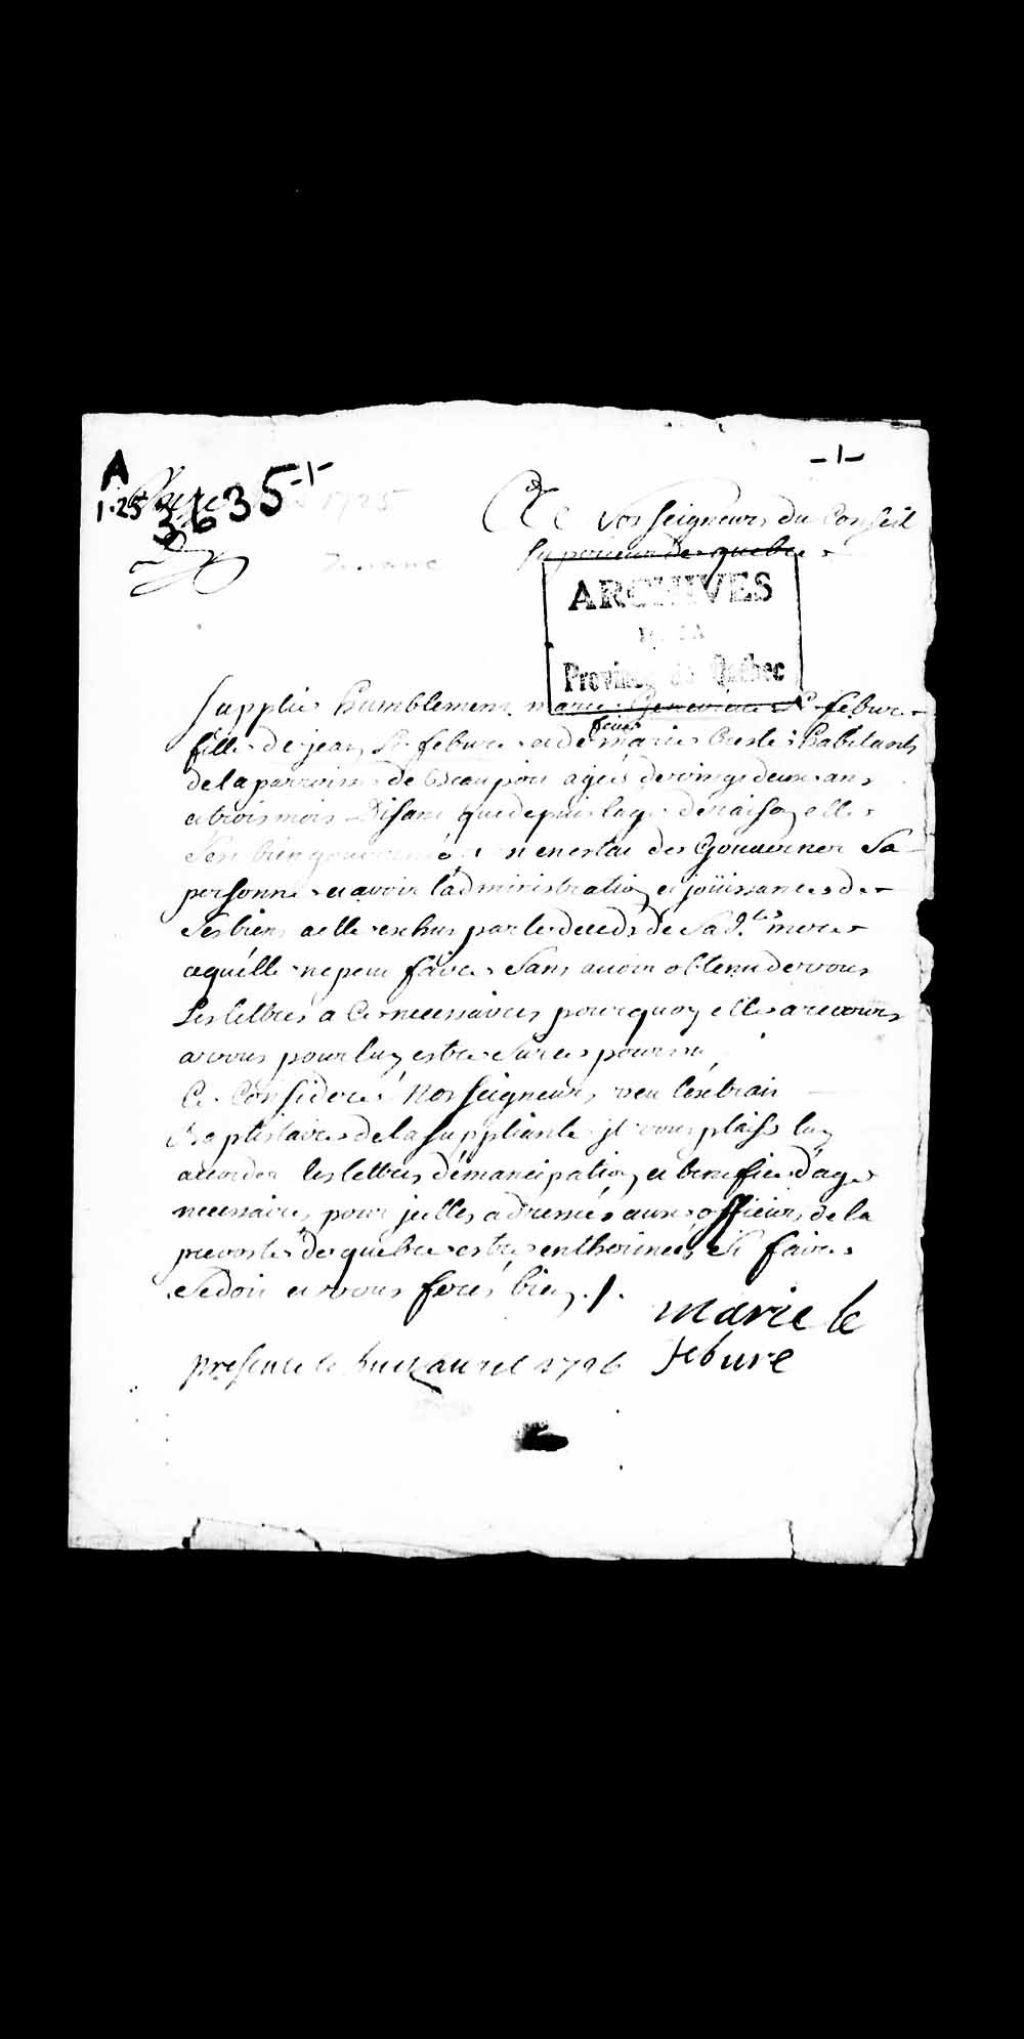 -1-
A
1.25
3635-1-
1725
A nos seigneurs du Conseil
superieur de quebec
ARCHIVES
DE LA
Province de Québec
Supplie humblement marie Genevieve Le febure
feue
fille de jean Le febure et de marie habitants
de la parroisse de Beaupré agée de vingt deux ans
et trois mois Disant que depuis l'age de raison elle
s'est bien gouvernée en estat de Gouverner Sa
personne et avoir l'administration et joüissance de
Ses biens a elle eschus par le deceds de Sa d.te mere
ce qu'elle ne peut faire Sans avoir obtenu de vous
Les lettres a Ce necessaires pourquoy elle a recours
a vous pour luy estre Sur ce pourvu
Ce Consideré Nosseigneurs, veu l'extrait
Baptistaire de la suppliante jl vous plaise luy
accorder les lettres d'émancipation et benefice d'age
necessaires pour jcelles adressés aux officiers de la
prevosté de quebec estre entherinées Et faire
Se doit et vous ferés bien ./.
marie le
febure
presenté le huit avril 1726